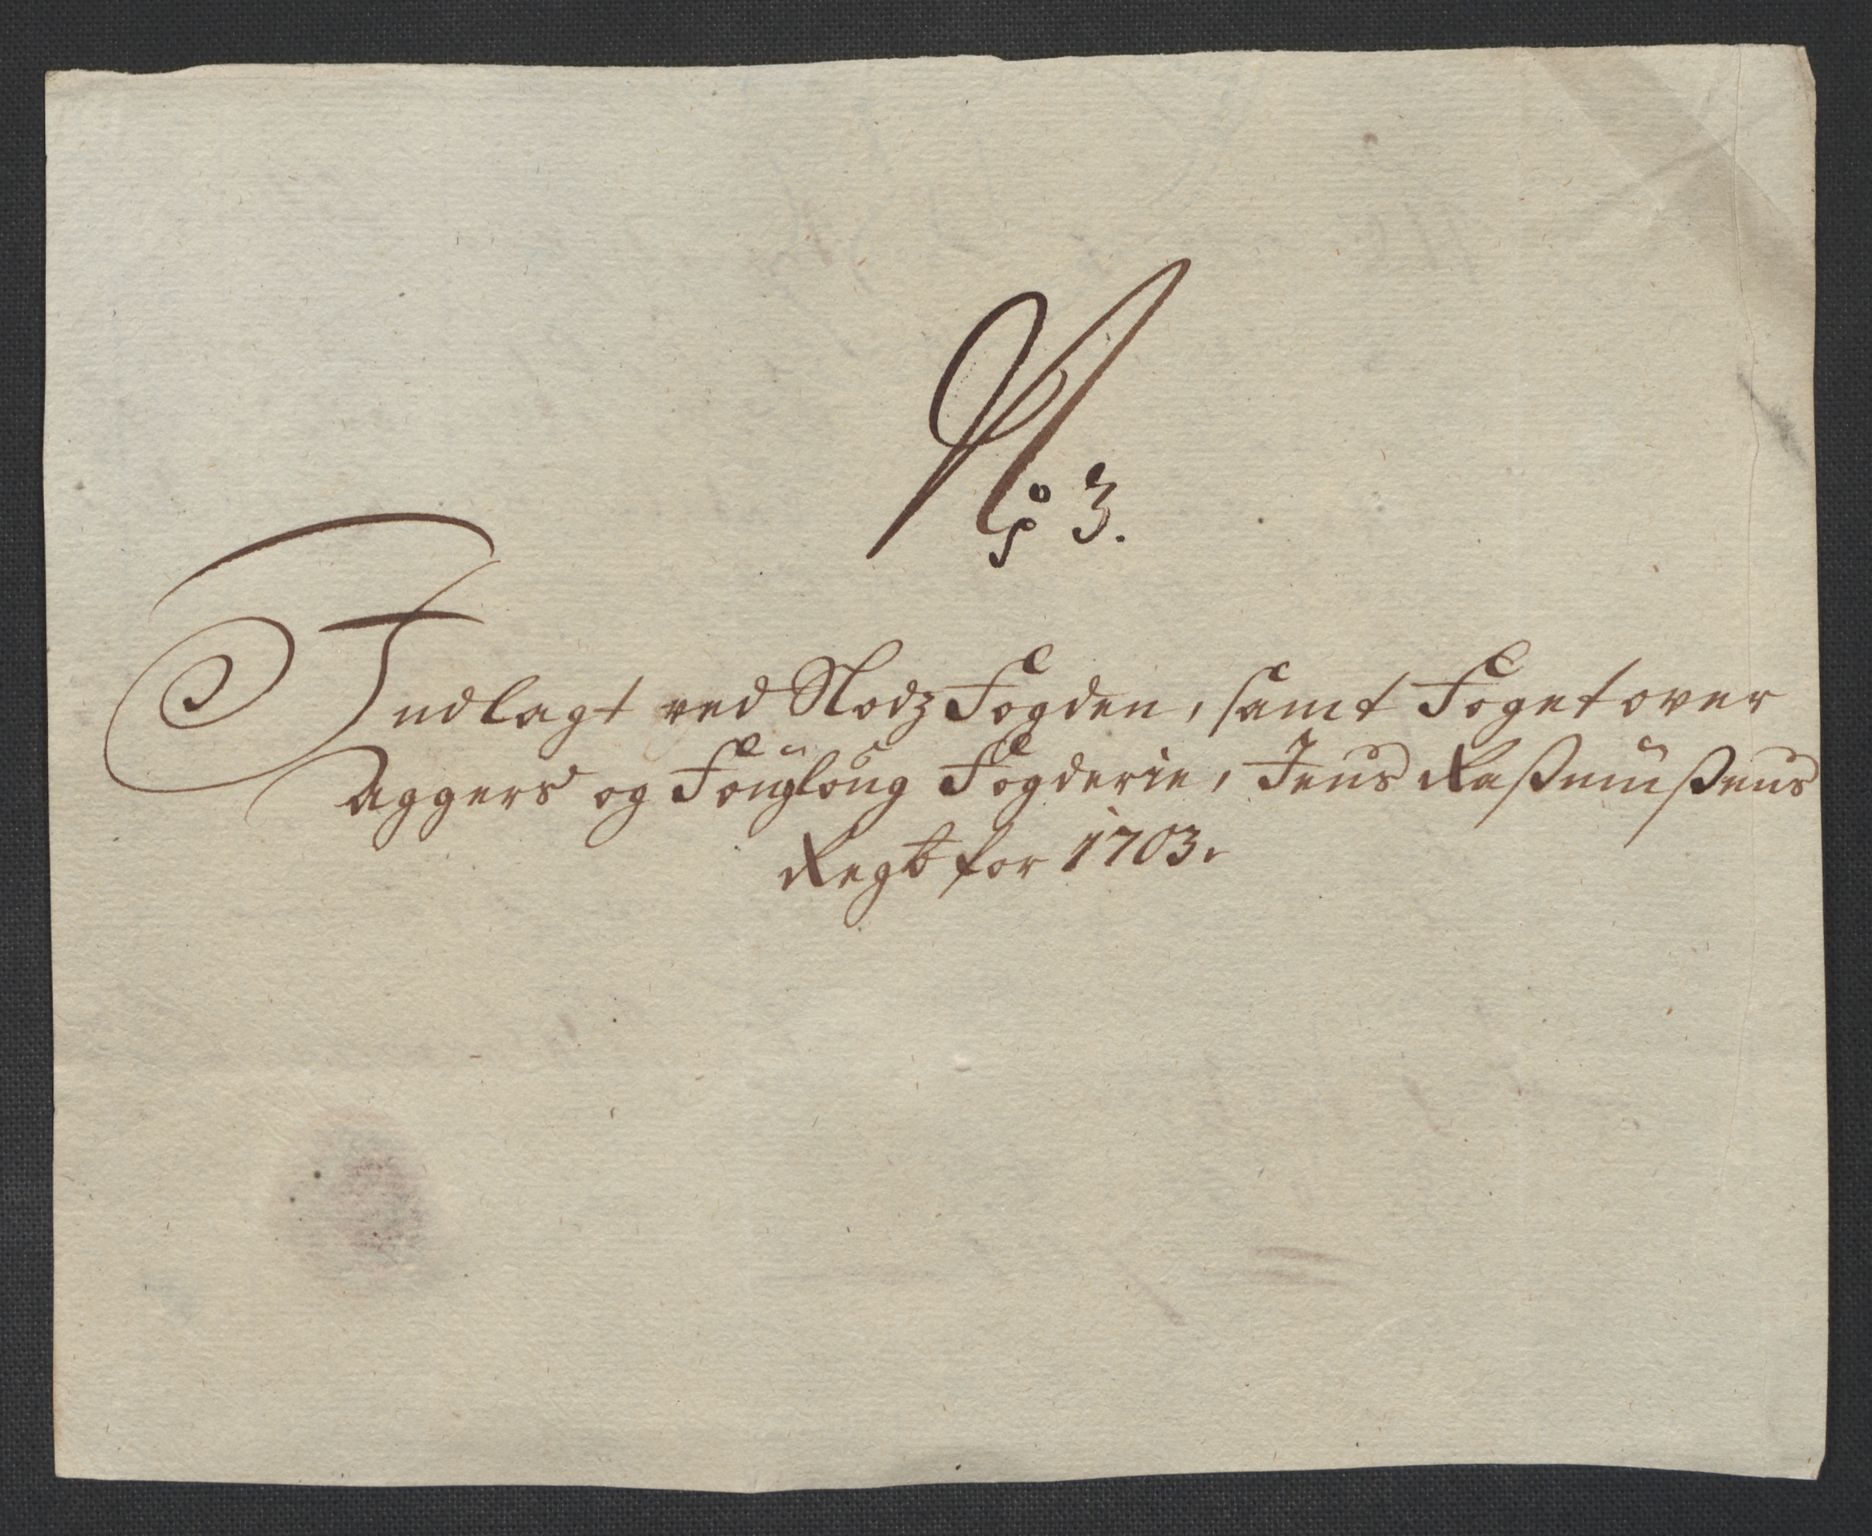 No 3.
Indlagt ved Slodz Fogden, samt Foget over
Aggers og Folloug Fogderie, Jens Raßmußens
Regb for 1703.